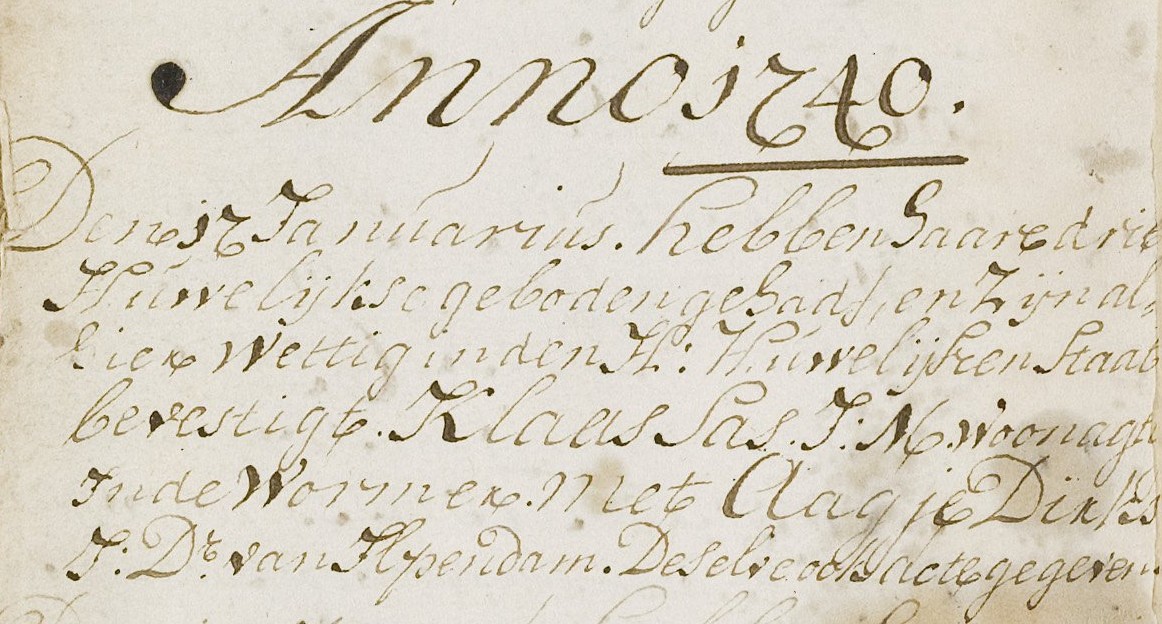 Anno 1740.
Den 17 Januarius. hebben haare drie
Huwelijkse geboden gehadt, en Zijn al,
hier Wettig in den H: Huwelijken Staat
bevestigt. Klaas Sas. J: M. woonagt
In de Wormer. Met Aagje Dirks
J: Dr. van Ilpendam. Deselve ook acte gegeven.